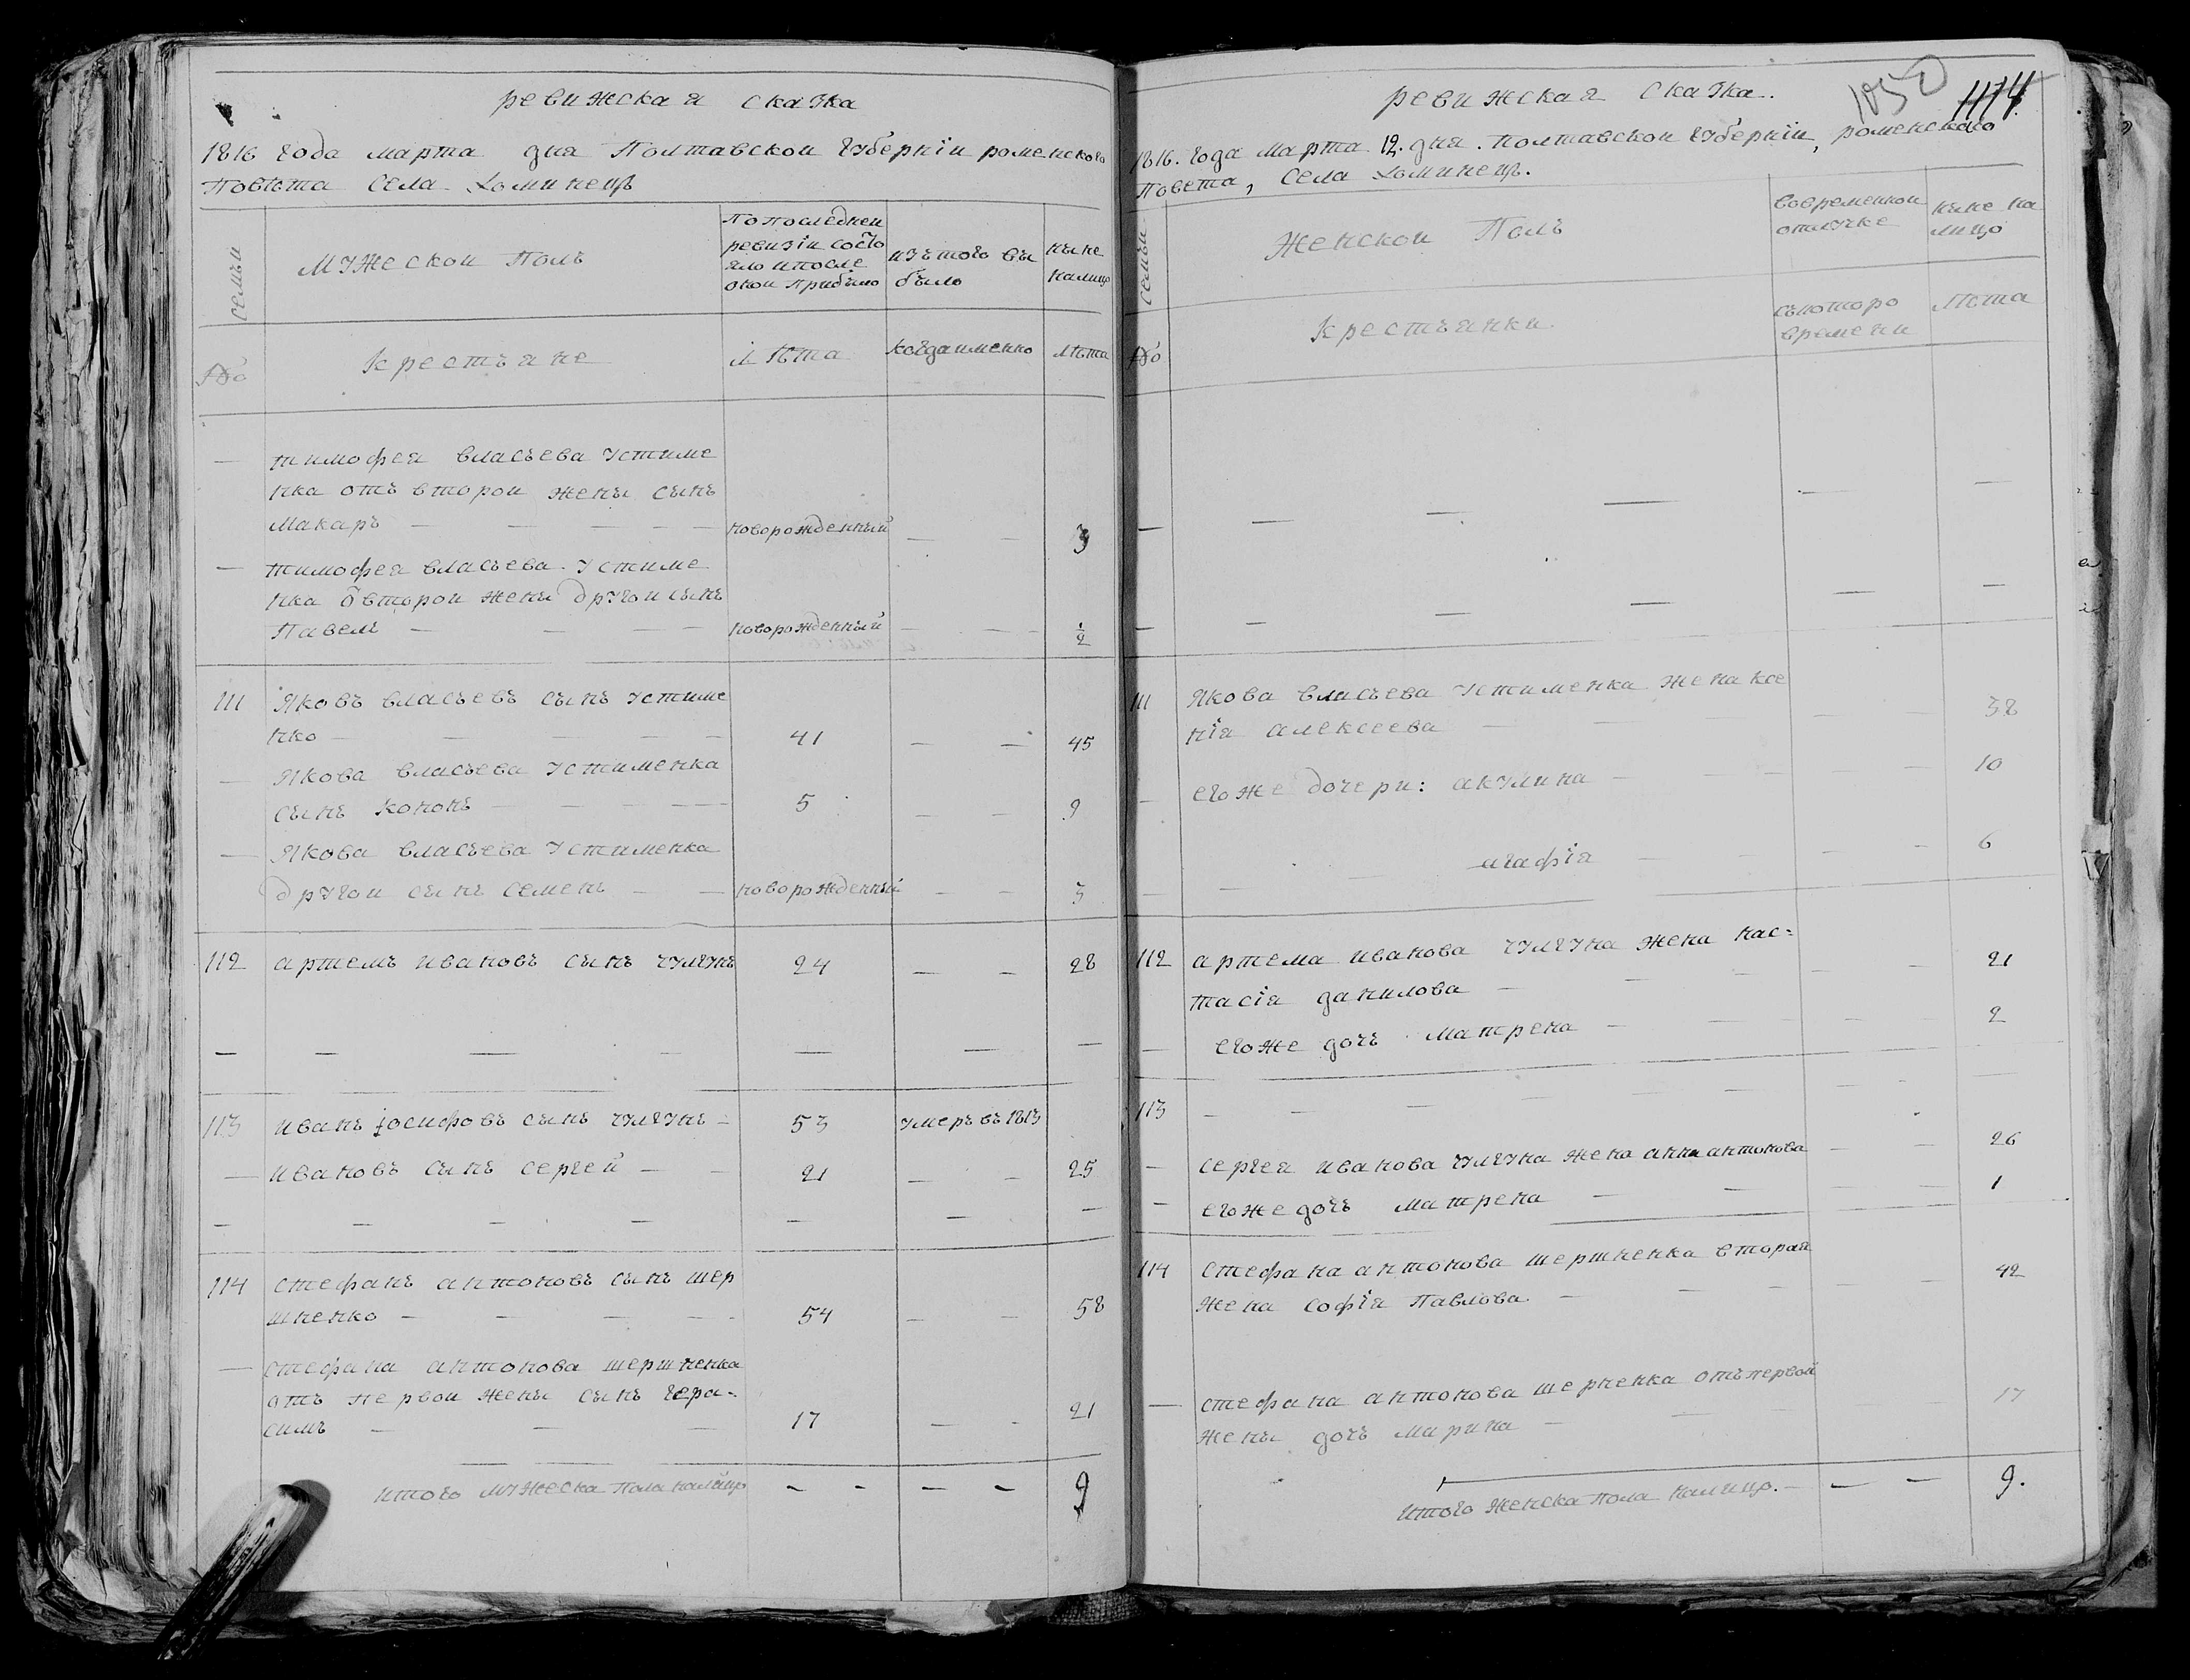 ревижская сказка
1816 года марта дня Полтавской губерніи роменского
Повѣта села хоминецъ
семьи
Мужеской Полъ
По последней
ревизіи состо
яло и после
оной прибыло
изъ того вы
было
ныне
налицо
№
крестьяне
лѣта
когда именно
лѣта
— тимофея власьева устиме
нка отъ второй жены сынъ
Макаръ — — — — новорожденный — — 3
— тимофея власьева устиме
нка ѿ второй жены другой сынъ
Павелъ — — — — новорожденный — — ½
111 Яковъ власьевъ сынъ устиме
нко — — — — — 41 — — 45
— Якова власьева устименка
сынъ кононъ — — — — 5 — — 9
— Якова власьева устименка
другой сынъ семенъ — — новорожденный — — 3
112 артемъ ивановъ сынъ чулгунъ 24 — — 28
— — — — — — —
113 иванъ іосифовъ сынъ чулгунъ — 53 умеръ въ 1813
— ивановъ сынъ сергей — — 21 — — 25
— — — — — — —
114 стефанъ антоновъ сынъ шер
шненко — — — — 54 — — 58
— стефана антонова шершненка
отъ первой жены сынъ гера-
симъ — — — 17 — — 21
итого мужеска пола налицо — — — — 9
1050 1174
ревижская сказка.
1816. года марта 12. дня. полтавской губерніи, роменского
Повета, села хоминецъ.
семьи
Женской Полъ
во временной
отлучке
ныне на
лицо
№
крестьянки
съ которо
времени
лѣта
— — — — — —
— — — — — —
111 Якова власьева устименка жена ксе
нія алексеева — — — — 38
— егоже дочери: акулина — — — — — 10
— — — агафія — — — — 6
112 артема иванова чулгуна жена нас-
тасія данилова — — — — — 21
— егоже дочь матрена — — — — — 2
113 — — — — — — —
— сергея иванова чулгуна жена анна антонова — — 26
— егоже дочь матрена — — — — 1
114 стефана антонова шершненка вторая
жена софія павлова. — — — — — 42
— стефана антонова шерненка отъ первой
жены дочь марина — — — 17
итого женска пола налицо. — — — 9.